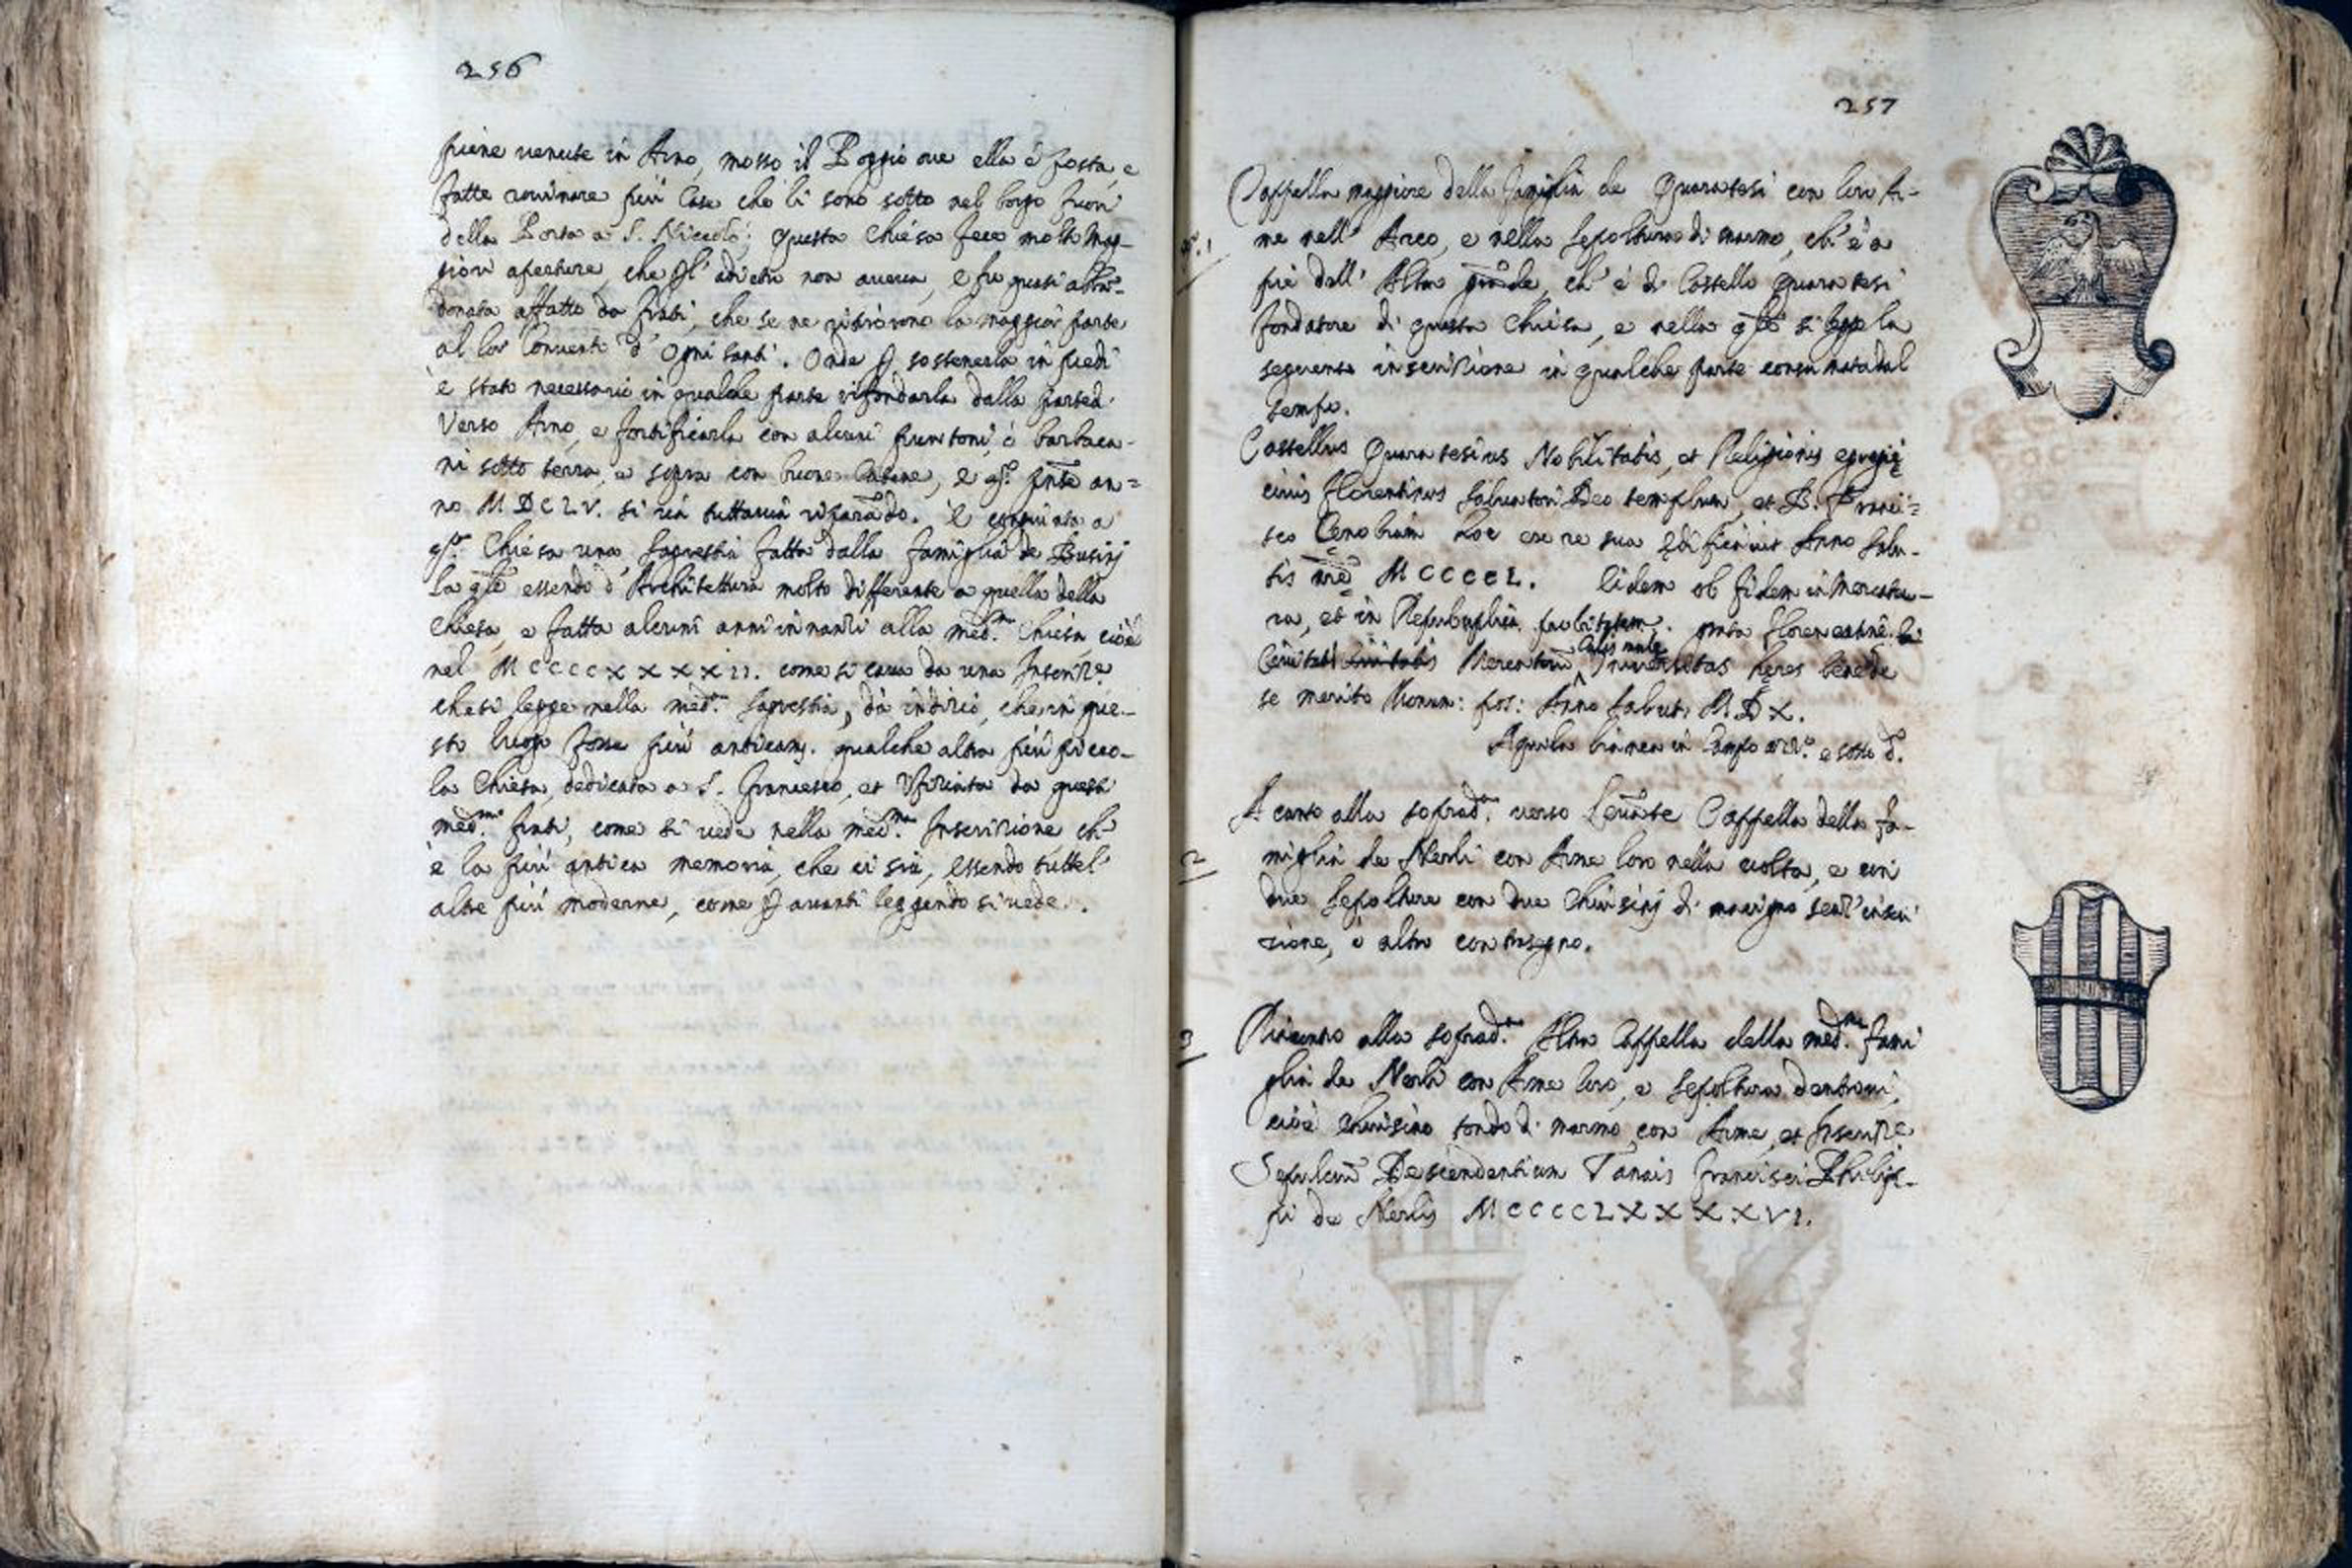 256
piene venute in Arno, mosso il Poggio ove ella è posta, e
fatte rovinare più Case che li sono sotto nel borgo fuori
della Porta a S. Niccolò; questa Chiesa fece molte mag-
giori aperture, che non aveva, e fu quasi abba-
donata affatto da frati, che se ne ritirorono la maggior parte
al lor Convento d'Ogni Santi. Onde p sostenerla in piedi
è stato necessario in qualche parte rifondarla dalla parte d.
Verso Arno, e fortificarla con alcuni puntoni, ò barbaca-
ni sotto terra, e sopra con buone Catene, e qsto. pnte an=
no MDCLV. si và tuttavia riparado. È congiunta a
qsta. Chiesa una Sagrestia fatta dalla famiglia de Businj
la qle essendo d'Architettura molto differente a quella della
Chiesa, e fatta alcuni anni innanzi alla med.ma Chiesa, cioè
nel MCCCCXXXXII. come si cava da una Inscriz.e
che si legge nella med.ma Sagrestia, dà inditio, che in que-
sto luogo fosse più anticam. qualche altra più picco-
la Chiesa, dedicata a S. Francesco, et Ufiziata da questi
med.mi frati, come si vede nella med.ma Inscrizione ch'
è la più antica memoria, che ci sia, essendo tutte l'
altre più moderne, come p avanti leggendo si vede.
257
Cappella maggiore della famiglia de Quaratesi con loro Ar-
n.o 1 me nell' Arco, e nella Sepoltura di marmo, ch' è a
piè dell' Altar grade, ch' è di Castello Quaratesi
fondatore di questa Chiesa, e nella qle si legge la
seguente inscrizione in qualche parte consumata dal
tempo.
Castellus Quaratesius Nobilitatis, et Religionis egregię
civis florentinus Salvatori Deo templum, et B. Franci=
sco Cenobium hoc ere suo ędificavit Anno Salu-
tis nrē MCCCCL. Eidem ob fidem in Mercatu-
ra, et in Republica
Civitati Civitatis Mercatorū Universitas hęres bene de
se merito Monum: pos: Anno Salutis MDX.
Aquila bianca in Campo e sotto d.o
2 A canto alla soprad.ta verso Levāte Cappella della fa-
miglia de Nerli con Arme loro nella volta, e con
due Sepolture con due Chiusinj di macigno senz'inscri
zione, ò altro contrasegno.
3 Accanto alla soprad.ta Altra Cappella della med.ma fami
glia de Nerli con Arme loro, e Sepoltura dentrovi,
cioè Chiusino tondo di marmo con Arme, et Inscriz.e
Sepulcrū Descendentium Tanais Francisci Philip-
pi de Nerlis MCCCCLXXXXVI.